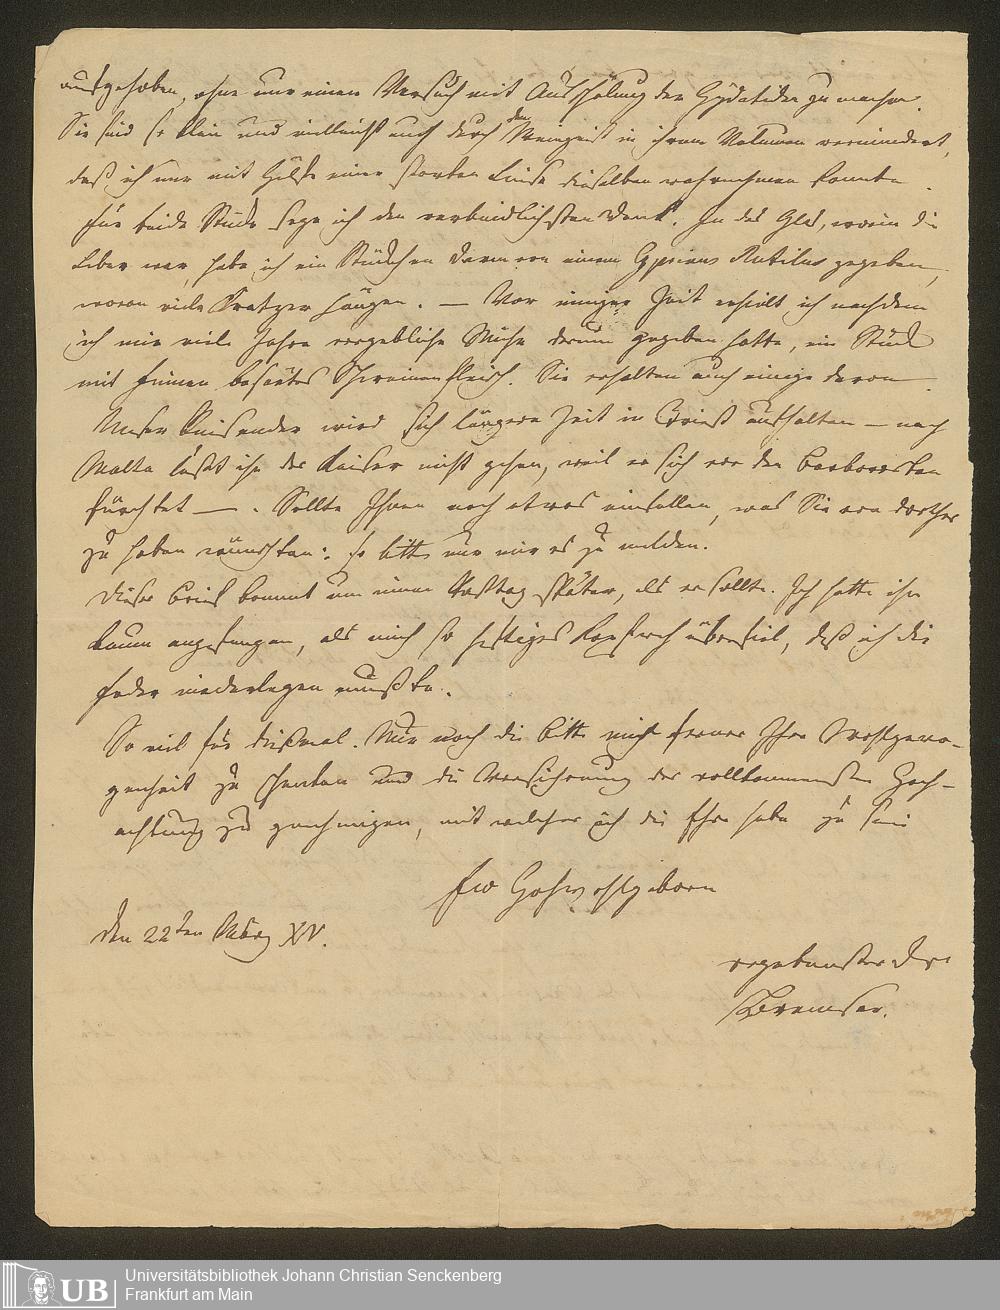 aufgehoben, ohne nur einen Versuch mit Ausschälung der Hydatiden zu machen.
Sie sind so klein und vielleicht auch durch den Weingeist in ihrem Volumen vermindert,
daß ich nur mit Hülfe einer starken Linse dieselben wahrnehmen konnte.
Für beide Stücke sage ich den verbindlichsten Dank. In das Glas, worin die
Leber war, habe ich ein Stückchen Darm von einem Cyprinus Rutilus gegeben,
woran viele Kratzer hängen. — Vor einiger Zeit erhielt ich nachdem
ich mir viele Jahre vergebliche Mühe darum gegeben hatte, ein Stück
mit Finnen besäetes Schweinenfleisch. Sie erhalten auch einige davon.
Unser Reisender wird sich längere Zeit in Triest aufhalten — nach
Malta läßt ihn der Kaiser nicht gehen, weil er sich vor den Barbaresken
fürchtet — . Sollte Ihnen noch etwas einfallen, was Sie von dorther
zu haben wünschten: so bitte nur mir es zu melden.
Dieser Brief kommt um einen Posttag später, als er sollte. Ich hatte ihn
kaum angefangen, als mich so heftiges Kopfweh überfiel, daß ich die
Feder niederlegen mußte.
So viel für dießmal. Nur noch die Bitte mich ferner Ihrer Wohlgewo-
genheit zu schenken und die Versicherung der vollkommensten Hoch-
achtung zu genehmigen, mit welcher ich die Ehre habe zu sein
Ew Hochwohlgeboren
den 22ten März XV.
ergebenster Dr
Bremser.
UB
Universitätsbibliothek Johann Christian Senckenberg
Frankfurt am Main